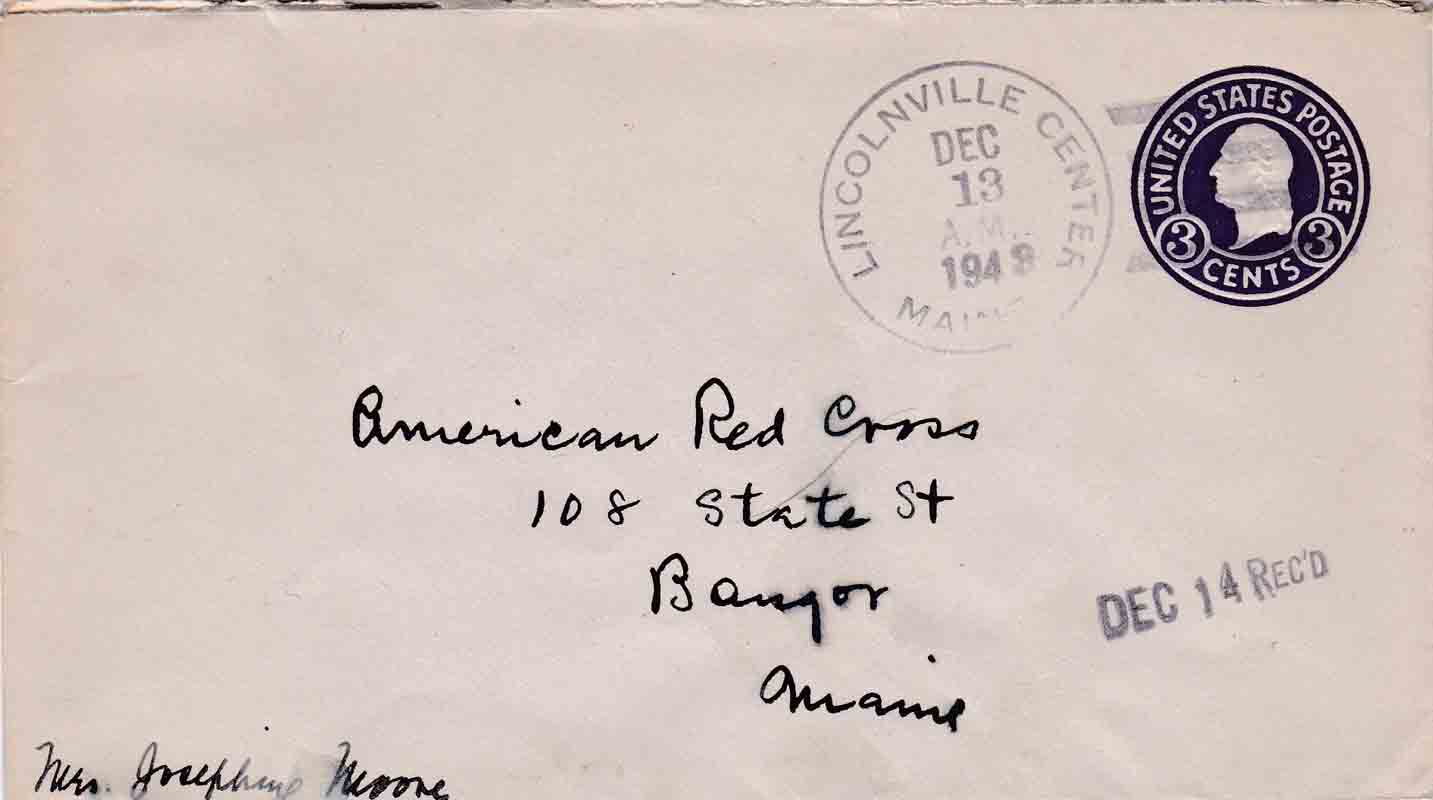 LINCOLNVILLE CENTER
DEC
13
A.M.
1943
MAINE
UNITED STATES POSTAGE
3 3
CENTS
American Red Cross
108 State St
Bangor
Maine
DEC 14 REC'D
Mrs. Josephine Moore